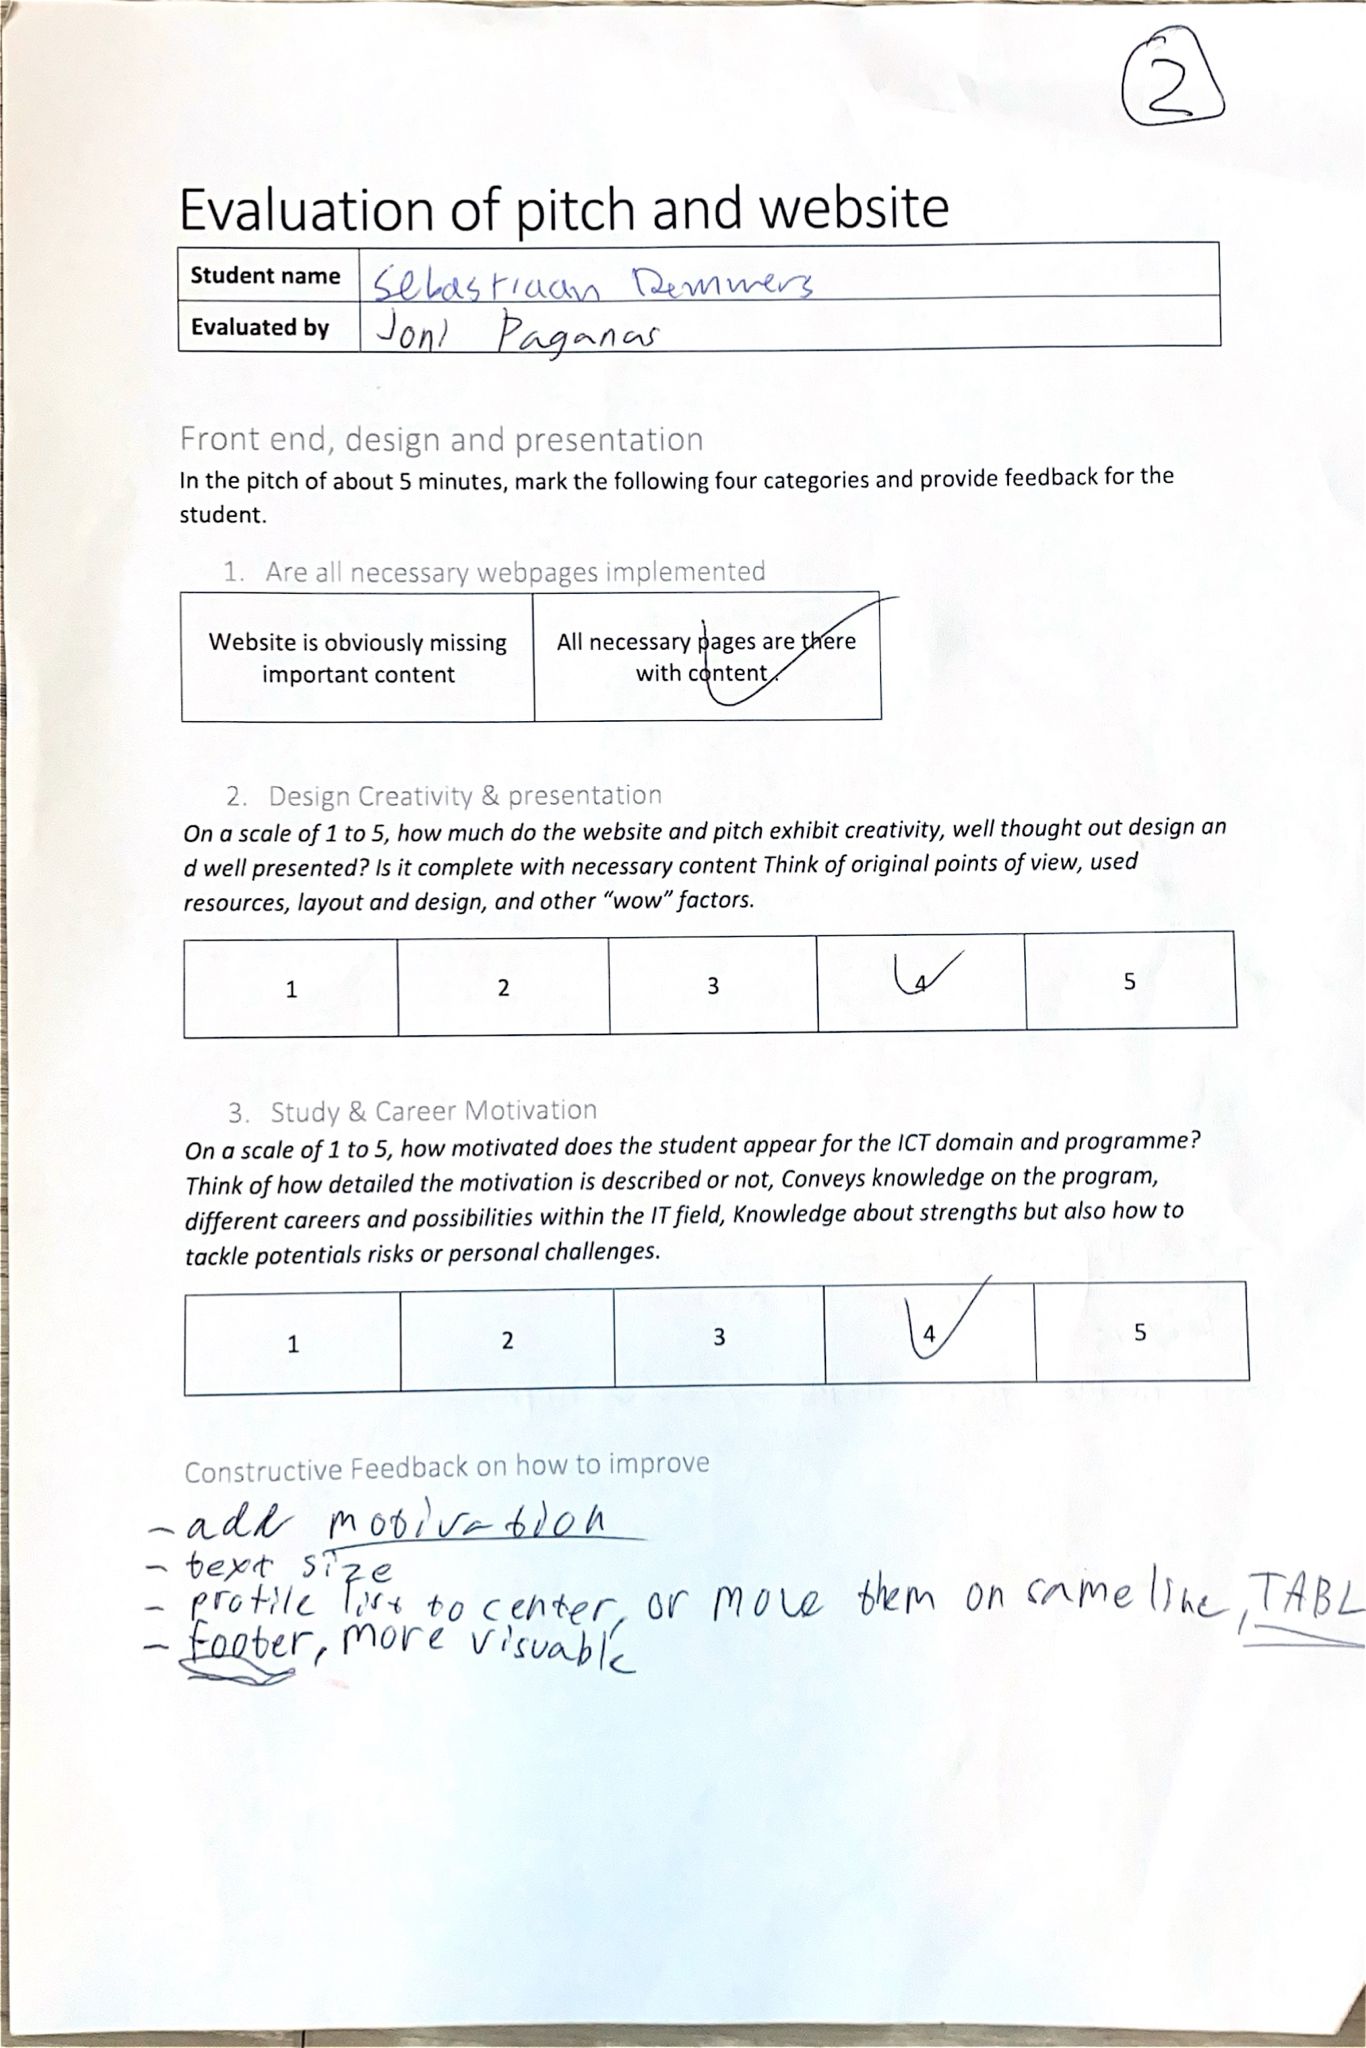 2
Evaluation of pitch and website
Student name Sebastiaan Demmers
Evaluated by Joni Paganas
Front end, design and presentation
In the pitch of about 5 minutes, mark the following four categories and provide feedback for the
student.
1. Are all necessary webpages implemented
Website is obviously missing
important content
All necessary pages are there
with content.
2. Design Creativity & presentation
On a scale of 1 to 5, how much do the website and pitch exhibit creativity, well thought out design an
d well presented? Is it complete with necessary content Think of original points of view, used
resources, layout and design, and other “wow” factors.
1 2 3 4 5
3. Study & Career Motivation
On a scale of 1 to 5, how motivated does the student appear for the ICT domain and programme?
Think of how detailed the motivation is described or not, Conveys knowledge on the program,
different careers and possibilities within the IT field, Knowledge about strengths but also how to
tackle potentials risks or personal challenges.
1 2 3 4 5
Constructive Feedback on how to improve
- add motivation
- text size
- profile list to center, or move them on same line, TABL
- footer, more visuable